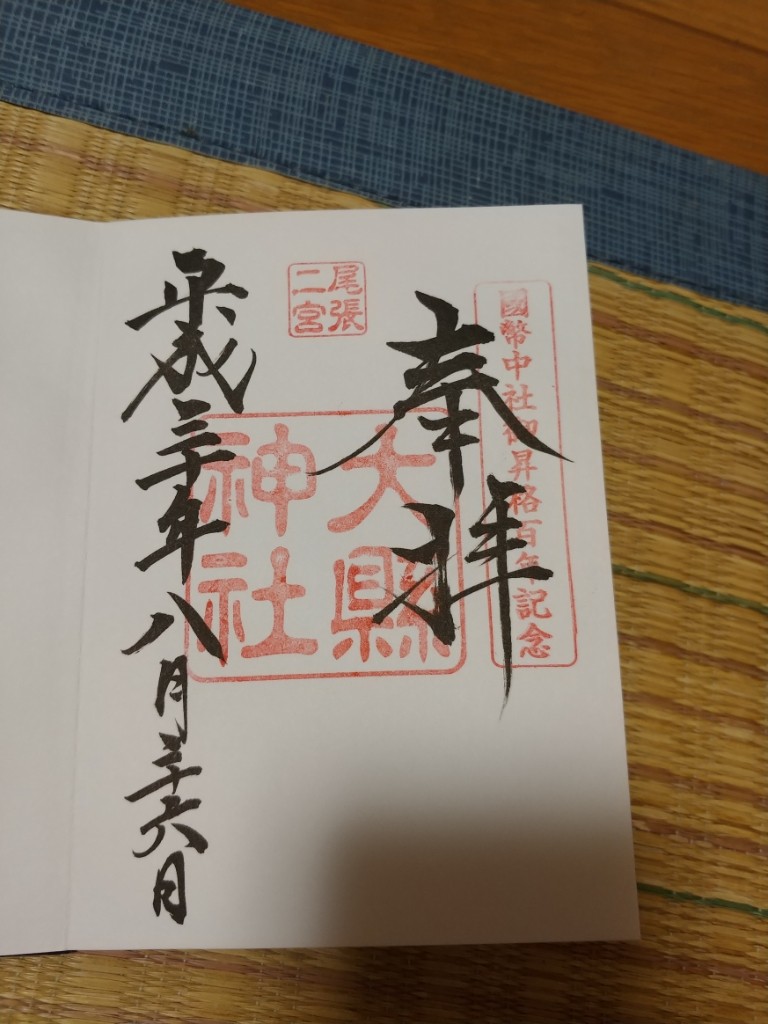 國幣中社御昇格百年記念
奉拝
尾張
二宮
大縣
神社
平成三十年八月二十六日